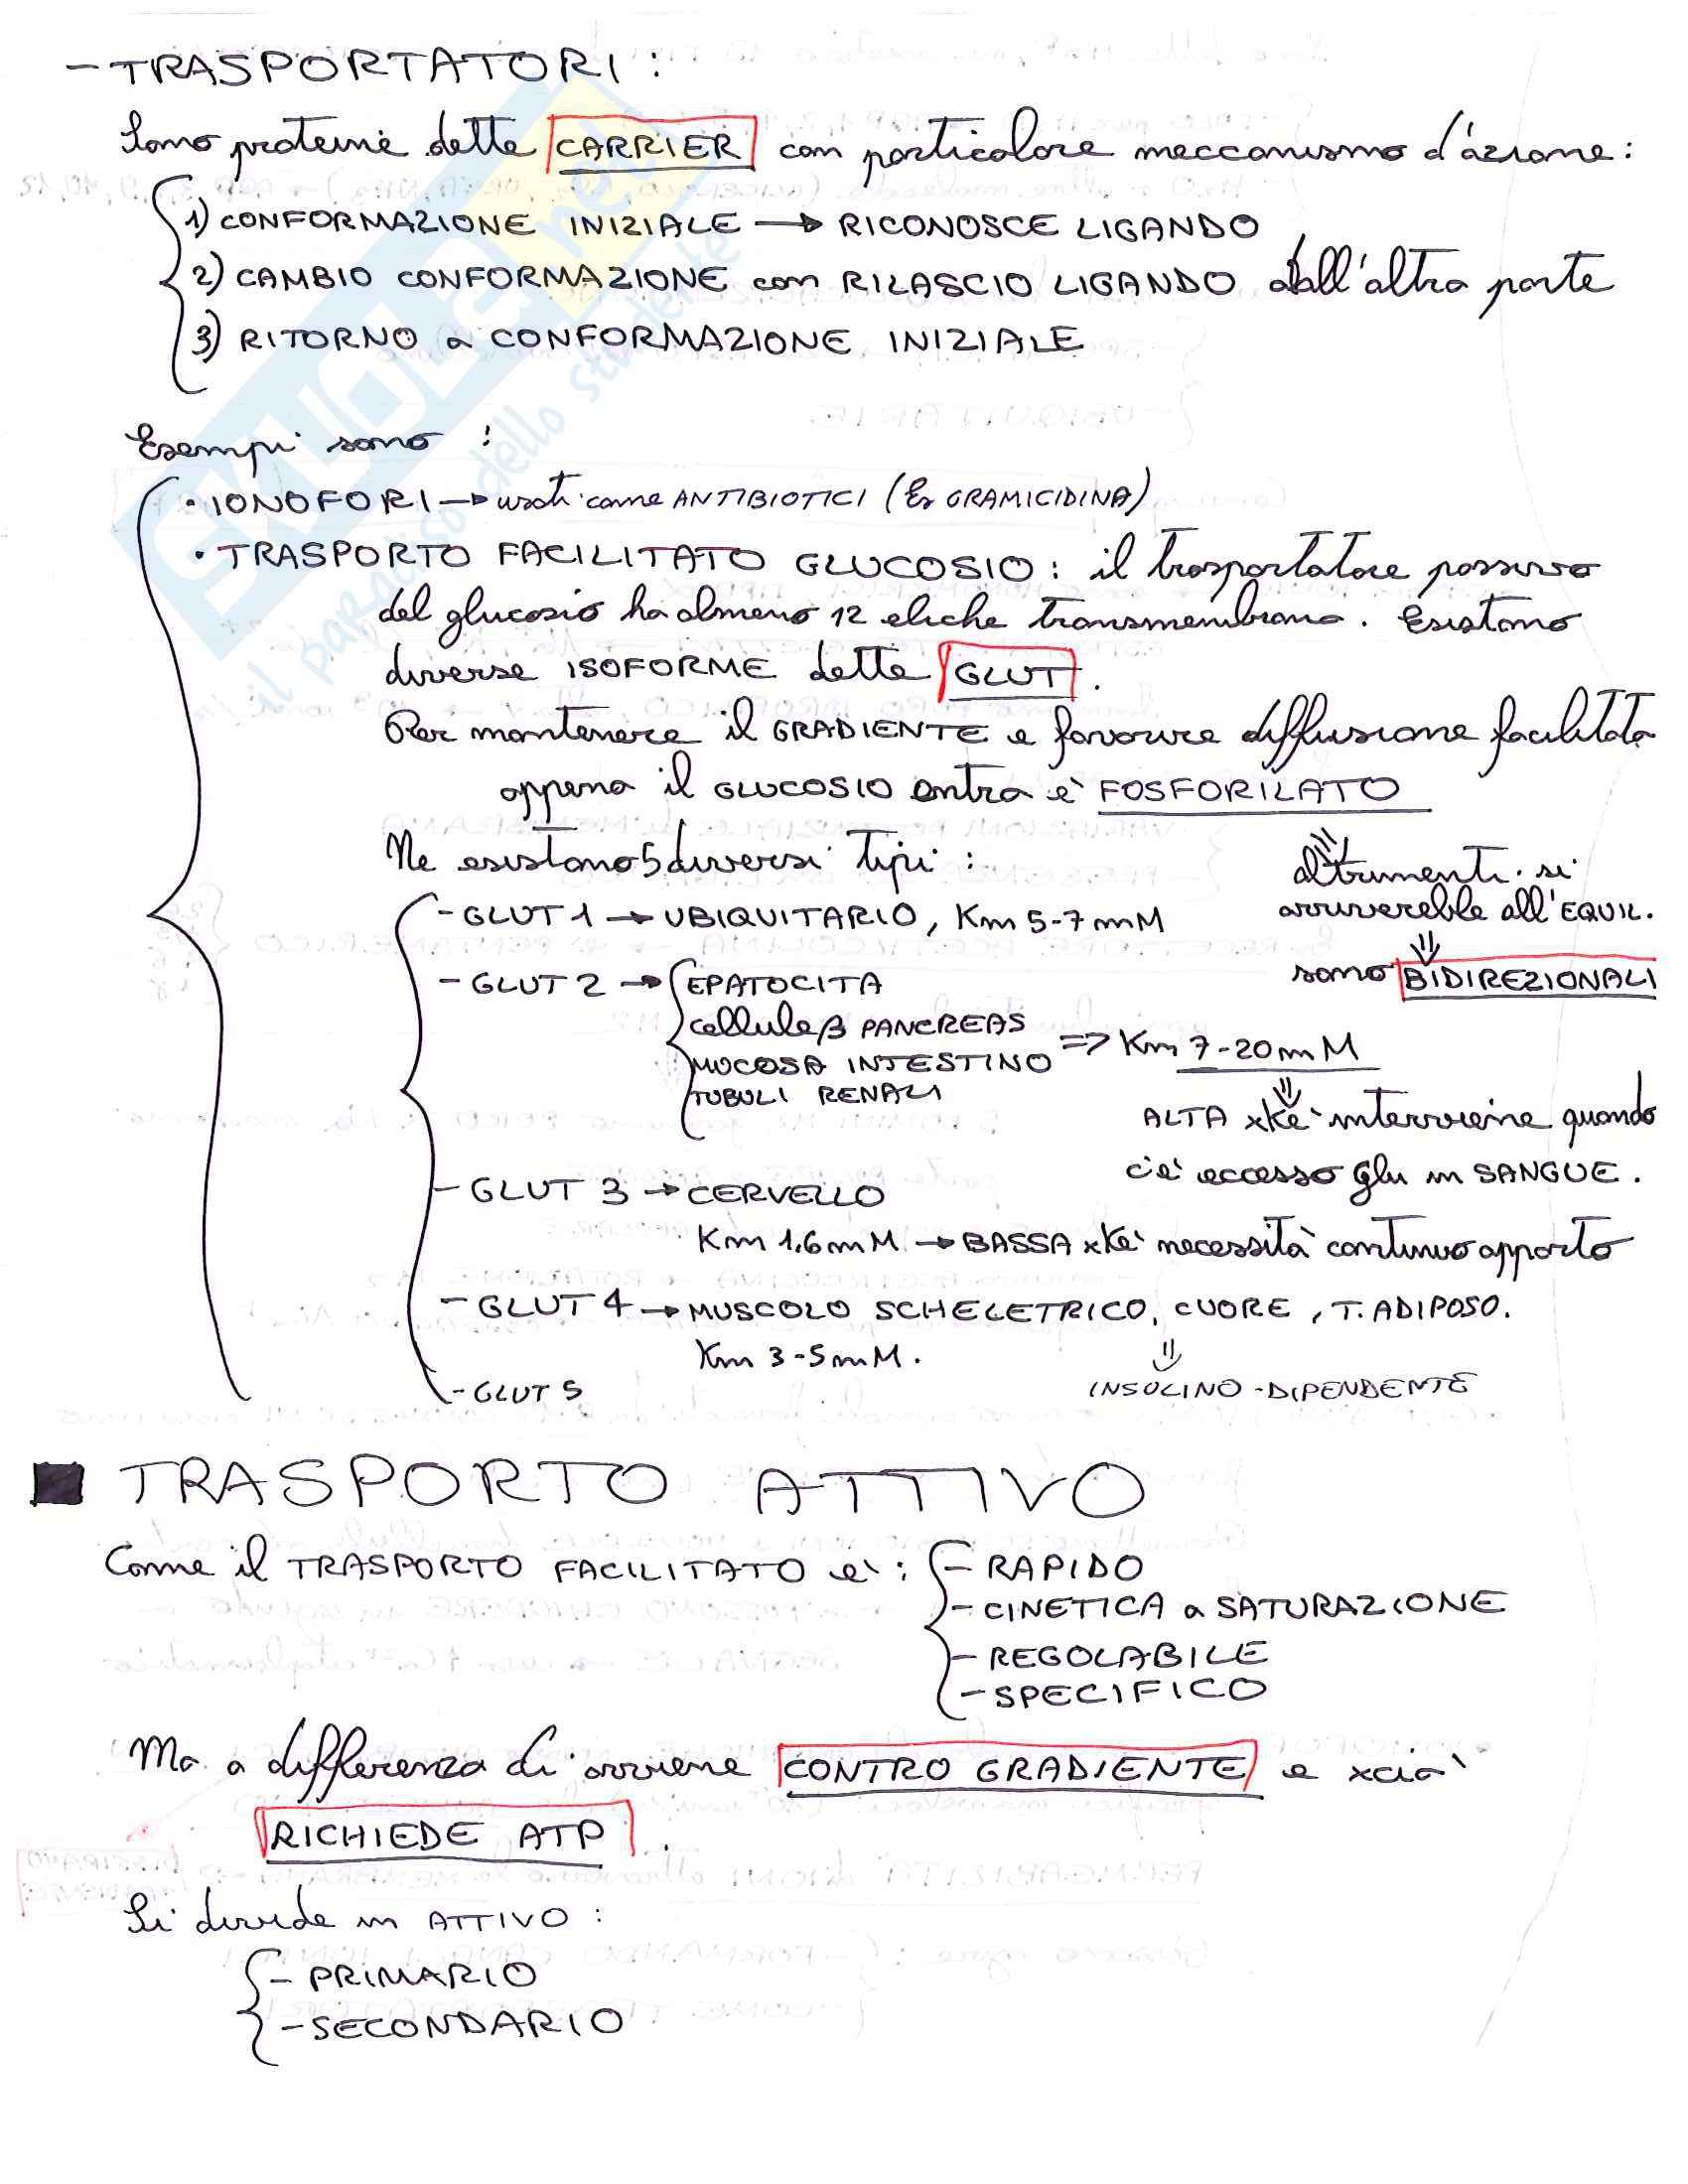 - TRASPORTATORI :
Sono proteine dette CARRIER con particolare meccanismo d'azione :
1) CONFORMAZIONE INIZIALE → RICONOSCE LIGANDO
2) CAMBIO CONFORMAZIONE con RILASCIO LIGANDO dall'altra parte
3) RITORNO a CONFORMAZIONE INIZIALE
Esempi sono :
• IONOFORI → usati come ANTIBIOTICI (Es GRAMICIDINA)
• TRASPORTO FACILITATO GLUCOSIO : il trasportatore passivo
del glucosio ha almeno 12 eliche transmembrana. Esistono
diverse ISOFORME dette GLUT .
Per mantenere il GRADIENTE e favorire diffusione facilitata
appena il GLUCOSIO entra è FOSFORILATO
⇓
altrimenti si
arriverebbe all'EQUIL.
⇓
sono BIDIREZIONALI
Ne esistono 5 diversi tipi :
- GLUT 1 → UBIQUITARIO, Km 5-7 mM
- GLUT 2 → EPATOCITA
cellule β PANCREAS
MUCOSA INTESTINO
TUBULI RENALI
=> Km 7-20 mM
⇓
ALTA xkè interviene quando
c'è eccesso Glu in SANGUE .
- GLUT 3 → CERVELLO
Km 1.6 mM → BASSA xkè necessità continuo apporto
- GLUT 4 → MUSCOLO SCHELETRICO, CUORE , T. ADIPOSO.
Km 3-5 mM .
⇓
INSULINO-DIPENDENTE
- GLUT 5
■ TRASPORTO ATTIVO
Come il TRASPORTO FACILITATO è :
- RAPIDO
- CINETICA a SATURAZIONE
- REGOLABILE
- SPECIFICO
Ma a differenza di avviene CONTRO GRADIENTE e xciò
RICHIEDE ATP .
Si divide in ATTIVO :
- PRIMARIO
- SECONDARIO
SKUOLA.net
il paradiso dello studente